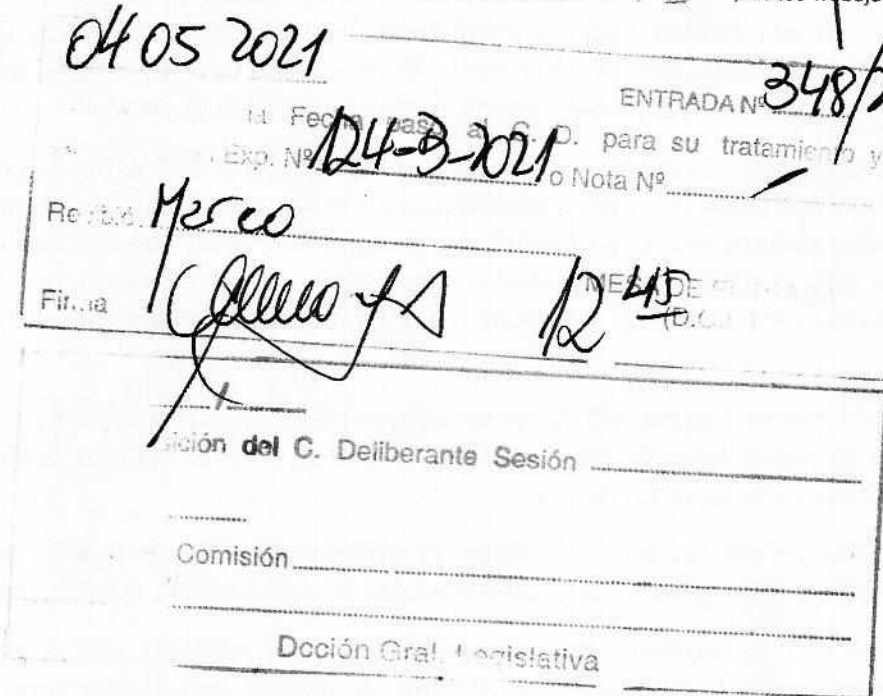 04 05 2021
ENTRADA Nº 348/2
la Fecha pasó al C. D. para su tratamiento y
Exp. Nº 124-B-2021 o Nota Nº
Marco
Firma 12 45 MESA DE
(D.G.
ción del C. Deliberante Sesión
Comisión
Dcción Gral. Legislativa